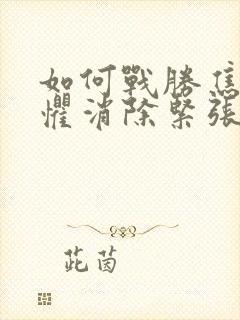 如何戰勝焦
懼消除緊張
茈茵